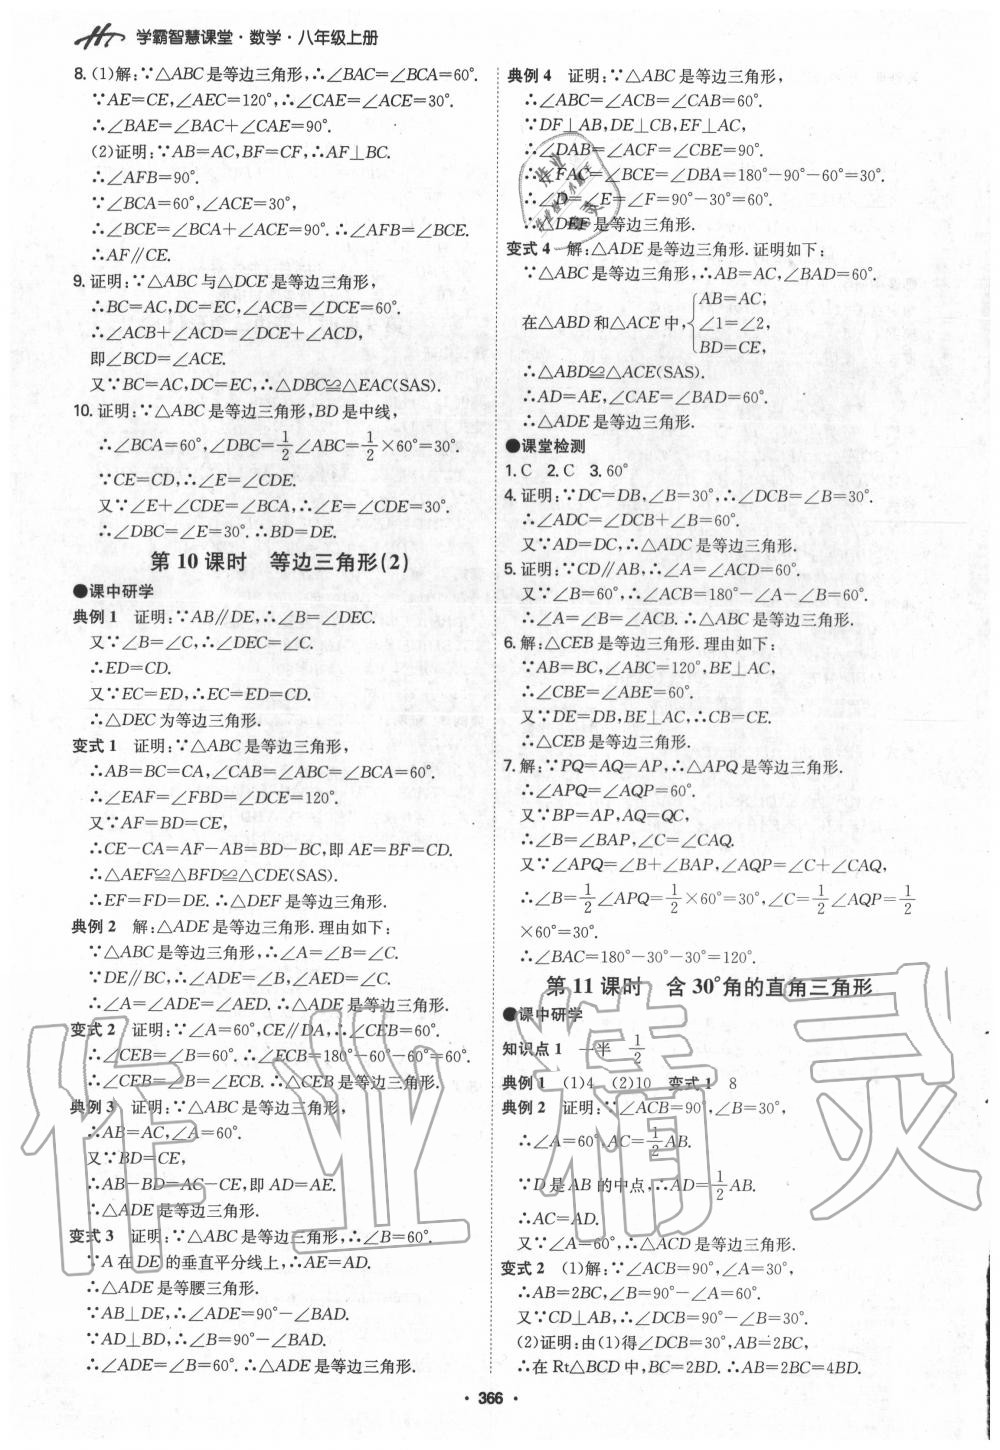 学霸智慧课堂·数学·八年级上册
8.(1)解:∵△ABC是等边三角形,∴∠BAC=∠BCA=60°.
∵AE=CE,∠AEC=120°,∴∠CAE=∠ACE=30°.
∴∠BAE=∠BAC+∠CAE=90°.
(2)证明:∵AB=AC,BF=CF,∴AF⊥BC.
∴∠AFB=90°.
∵∠BCA=60°,∠ACE=30°,
∴∠BCE=∠BCA+∠ACE=90°.∴∠AFB=∠BCE.
∴AF∥CE.
9.证明:∵△ABC与△DCE是等边三角形,
∴BC=AC,DC=EC,∠ACB=∠DCE=60°.
∴∠ACB+∠ACD=∠DCE+∠ACD,
即∠BCD=∠ACE.
又∵BC=AC,DC=EC,∴△DBC≌△EAC(SAS).
10.证明:∵△ABC是等边三角形,BD是中线,
∴∠BCA=60°,∠DBC=1/2∠ABC=1/2×60°=30°.
∵CE=CD,∴∠E=∠CDE.
又∵∠E+∠CDE=∠BCA,∴∠E=∠CDE=30°.
∴∠DBC=∠E=30°.∴BD=DE.
第10课时 等边三角形(2)
●课中研学
典例1 证明:∵AB∥DE,∴∠B=∠DEC.
又∵∠B=∠C,∴∠DEC=∠C.
∴ED=CD.
又∵EC=ED,∴EC=ED=CD.
∴△DEC为等边三角形.
变式1 证明:∵△ABC是等边三角形,
∴AB=BC=CA,∠CAB=∠ABC=∠BCA=60°.
∴∠EAF=∠FBD=∠DCE=120°.
又∵AF=BD=CE,
∴CE-CA=AF-AB=BD-BC,即AE=BF=CD.
∴△AEF≌△BFD≌△CDE(SAS).
∴EF=FD=DE.∴△DEF是等边三角形.
典例2 解:△ADE是等边三角形.理由如下:
∵△ABC是等边三角形,∴∠A=∠B=∠C.
∵DE∥BC,∴∠ADE=∠B,∠AED=∠C.
∴∠A=∠ADE=∠AED.∴△ADE是等边三角形.
变式2 证明:∵∠A=60°,CE∥DA,∴∠CEB=60°.
∴∠CEB=∠B=60°.∴∠ECB=180°-60°-60°=60°.
∴∠CEB=∠B=∠ECB.∴△CEB是等边三角形.
典例3 证明:∵△ABC是等边三角形,
∴AB=AC,∠A=60°.
又∵BD=CE,
∴AB-BD=AC-CE,即AD=AE.
∴△ADE是等边三角形.
变式3 证明:∵△ABC是等边三角形,∴∠B=60°.
∵A在DE的垂直平分线上,∴AE=AD.
∴△ADE是等腰三角形.
∵AB⊥DE,∴∠ADE=90°-∠BAD.
∵AD⊥BD,∴∠B=90°-∠BAD.
∴∠ADE=∠B=60°.∴△ADE是等边三角形.
典例4 证明:∵△ABC是等边三角形,
∴∠ABC=∠ACB=∠CAB=60°.
∵DF⊥AB,DE⊥CB,EF⊥AC,
∴∠DAB=∠ACF=∠CBE=90°.
∴∠FAC=∠BCE=∠DBA=180°-90°-60°=30°.
∴∠D=∠E=∠F=90°-30°=60°.
∴△DEF是等边三角形.
变式4 解:△ADE是等边三角形.证明如下:
∵△ABC是等边三角形,∴AB=AC,∠BAD=60°.
AB=AC,
在△ABD和△ACE中,∠1=∠2,
BD=CE,
∴△ABD≌△ACE(SAS).
∴AD=AE,∠CAE=∠BAD=60°.
∴△ADE是等边三角形.
●课堂检测
1.C 2.C 3.60°
4.证明:∵DC=DB,∠B=30°,∴∠DCB=∠B=30°.
∴∠ADC=∠DCB+∠B=60°.
又∵AD=DC,∴△ADC是等边三角形.
5.证明:∵CD∥AB,∴∠A=∠ACD=60°.
又∵∠B=60°,∴∠ACB=180°-∠A-∠B=60°.
∴∠A=∠B=∠ACB.∴△ABC是等边三角形.
6.解:△CEB是等边三角形.理由如下:
∵AB=BC,∠ABC=120°,BE⊥AC,
∴∠CBE=∠ABE=60°.
又∵DE=DB,BE⊥AC,∴CB=CE.
∴△CEB是等边三角形.
7.解:∵PQ=AQ=AP,∴△APQ是等边三角形.
∴∠APQ=∠AQP=60°.
又∵BP=AP,AQ=QC,
∴∠B=∠BAP,∠C=∠CAQ.
又∵∠APQ=∠B+∠BAP,∠AQP=∠C+∠CAQ,
∴∠B=1/2∠APQ=1/2×60°=30°,∠C=1/2∠AQP=1/2
×60°=30°.
∴∠BAC=180°-30°-30°=120°.
第11课时 含30°角的直角三角形
●课中研学
知识点1 一半 1/2
典例1 (1)4 (2)10 变式1 8
典例2 证明:∵∠ACB=90°,∠B=30°,
∴∠A=60°,AC=1/2AB.
∵D是AB的中点,∴AD=1/2AB.
∴AC=AD.
又∵∠A=60°,∴△ACD是等边三角形.
变式2 (1)解:∵∠ACB=90°,∠A=30°,
∴AB=2BC,∠B=90°-∠A=60°.
又∵CD⊥AB,∴∠DCB=90°-∠B=30°.
(2)证明:由(1)得∠DCB=30°,AB=2BC,
∴在Rt△BCD中,BC=2BD.∴AB=2BC=4BD.
·366·
作业精灵